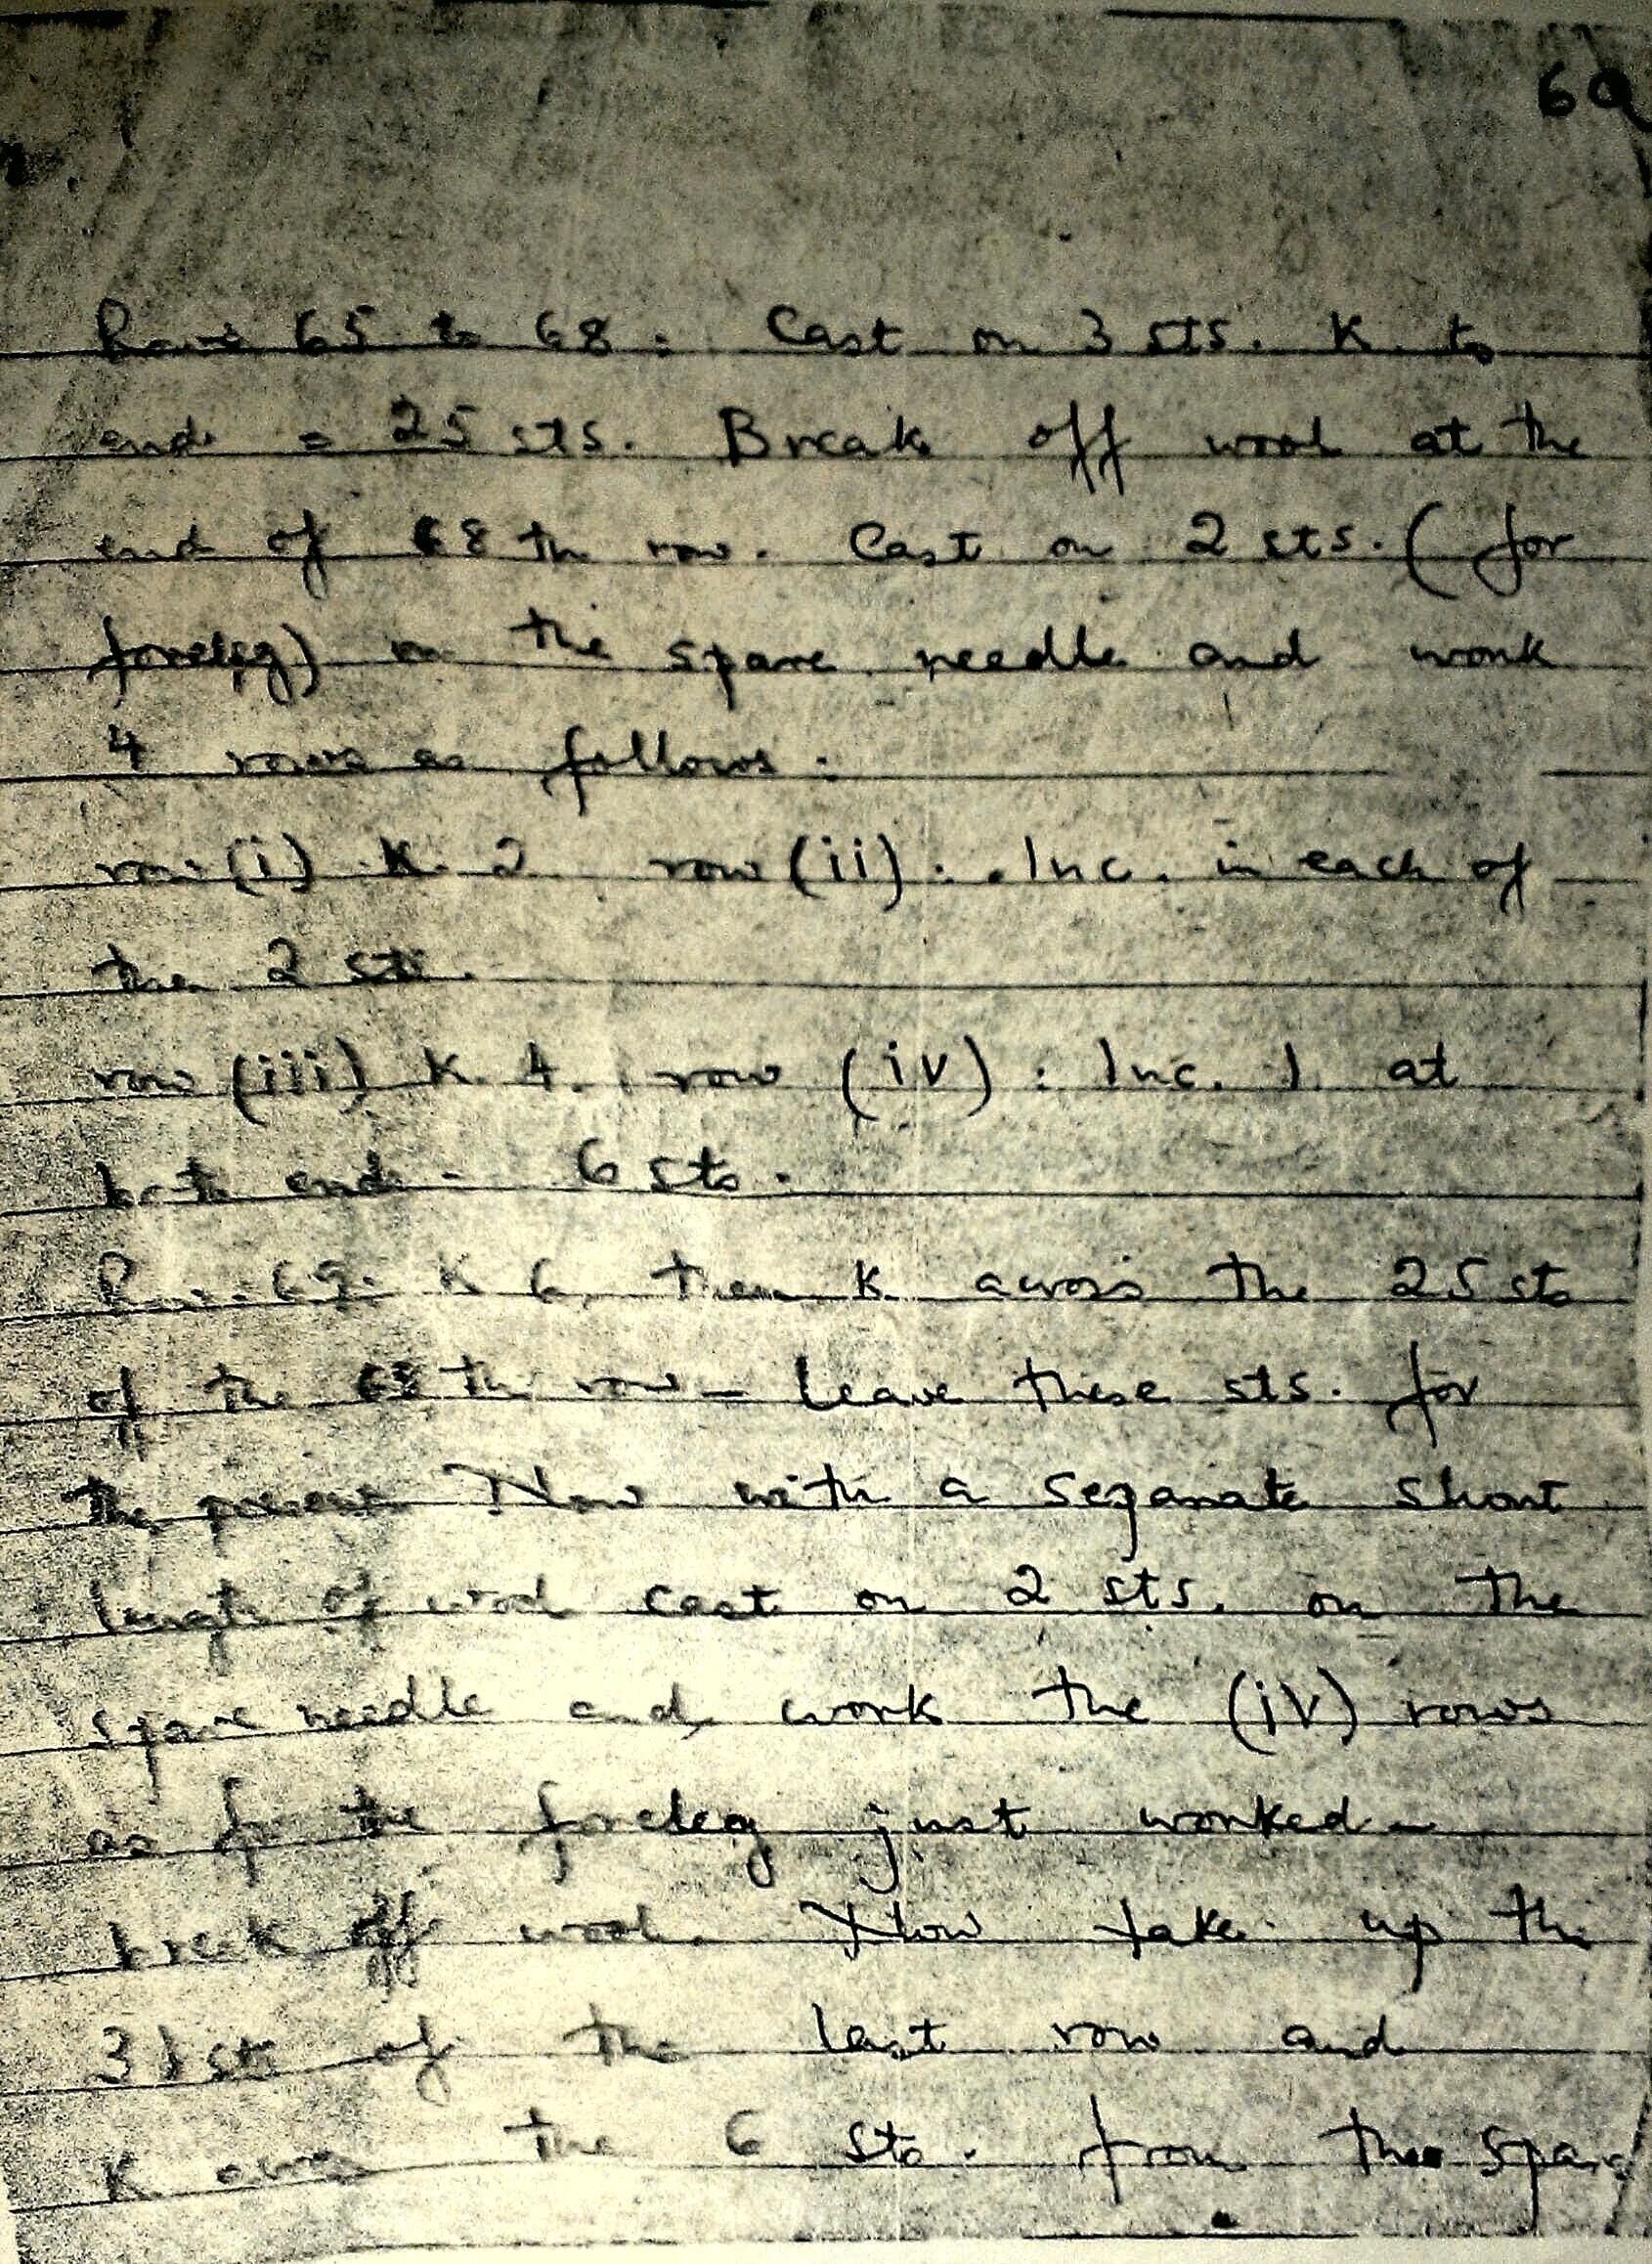 60
Rows 65 to 68 : Cast on 3 sts. K. to
end = 25 sts. Break off wool at the
end of 68 th row. Cast on 2 sts. (for
foreleg) on the spare needle and work
4 rows as follows :
row (i) K. 2 row (ii) : Inc. in each of
the 2 sts.
row (iii) K. 4. row (iv) : Inc. 1 at
both end - 6 sts.
Row 69. K 6, then K. across the 25 sts
of the 68 th row - Leave these sts. for
the present Now with a separate short
length of wool cast on 2 sts. on the
spare needle and work the (iv) rows
as for the foreleg just worked -
break off wool. Now take up the
31 sts of the last row and
K across the 6 sts. from the spare